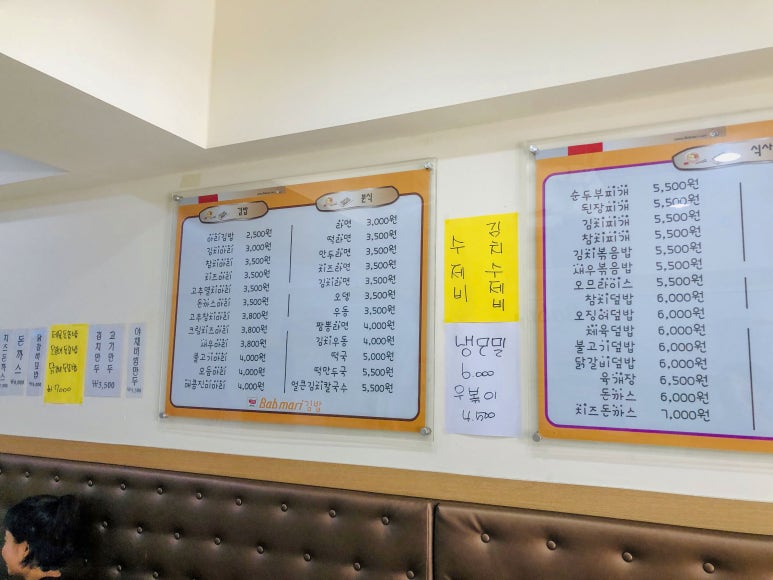 김밥
마리김밥 2,500원
김치마리 3,000원
참치마리 3,500원
치즈마리 3,500원
고추멸치마리 3,500원
돈까스마리 3,500원
고추참치마리 3,800원
크림치즈마리 3,800원
새우마리 3,800원
불고기마리 4,000원
모듬마리 4,000원
매콤진미마리 4,000원
분식
라면 3,000원
떡라면 3,500원
만두라면 3,500원
치즈라면 3,500원
김치라면 3,500원
오뎅 3,500원
우동 3,500원
짬뽕라면 4,000원
김치우동 4,000원
떡국 5,000원
떡만두국 5,500원
얼큰김치칼국수 5,500원
Babmari김밥
김치수제비
수제비
냉모밀
6,000
우볶이
4,500
식사
순두부찌개 5,500원
된장찌개 5,500원
김치찌개 5,500원
참치찌개 5,500원
김치볶음밥 5,500원
새우볶음밥 5,500원
오므라이스 5,500원
참치덮밥 6,000원
오징어덮밥 6,000원
제육덮밥 6,000원
불고기덮밥 6,000원
닭갈비덮밥 6,000원
육개장 6,500원
돈까스 6,000원
치즈돈까스 7,000원
치즈돈까스
돈까스
₩7000
김치만두
고기만두
₩3,500
야채비빔만두